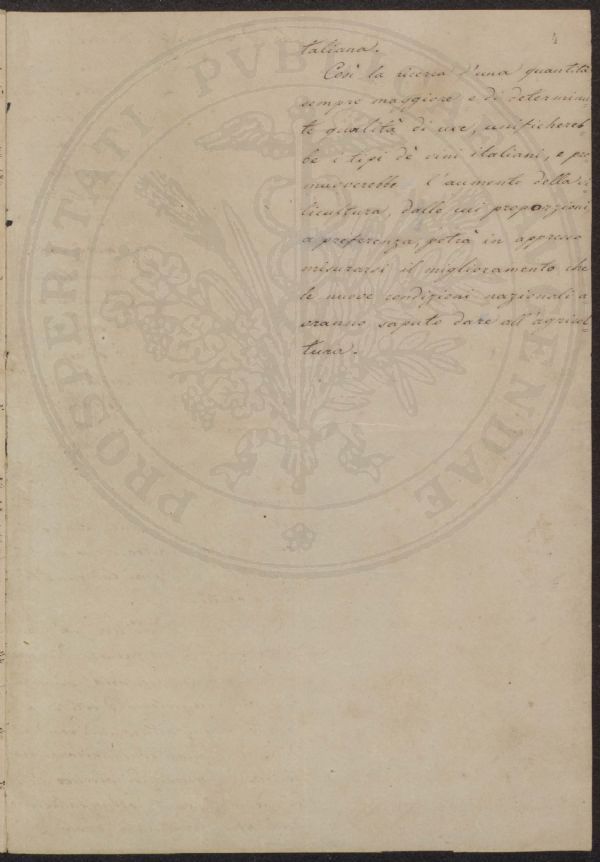 4
taliana.
Così la ricerca d'una quantità
sempre maggiore e di determina
te qualità di uve, unifichereb-
be i tipi dè vini italiani, e pro
muoverebbe l'aumento della vi
ticultura, dalle cui proporzioni
a preferenza, potrà in appresso
misurarsi il miglioramento che
le nuove condizioni nazionali a
vranno saputo dare all'agricul-
tura.
PROSPERITATI PVBLICAE
ENDAE